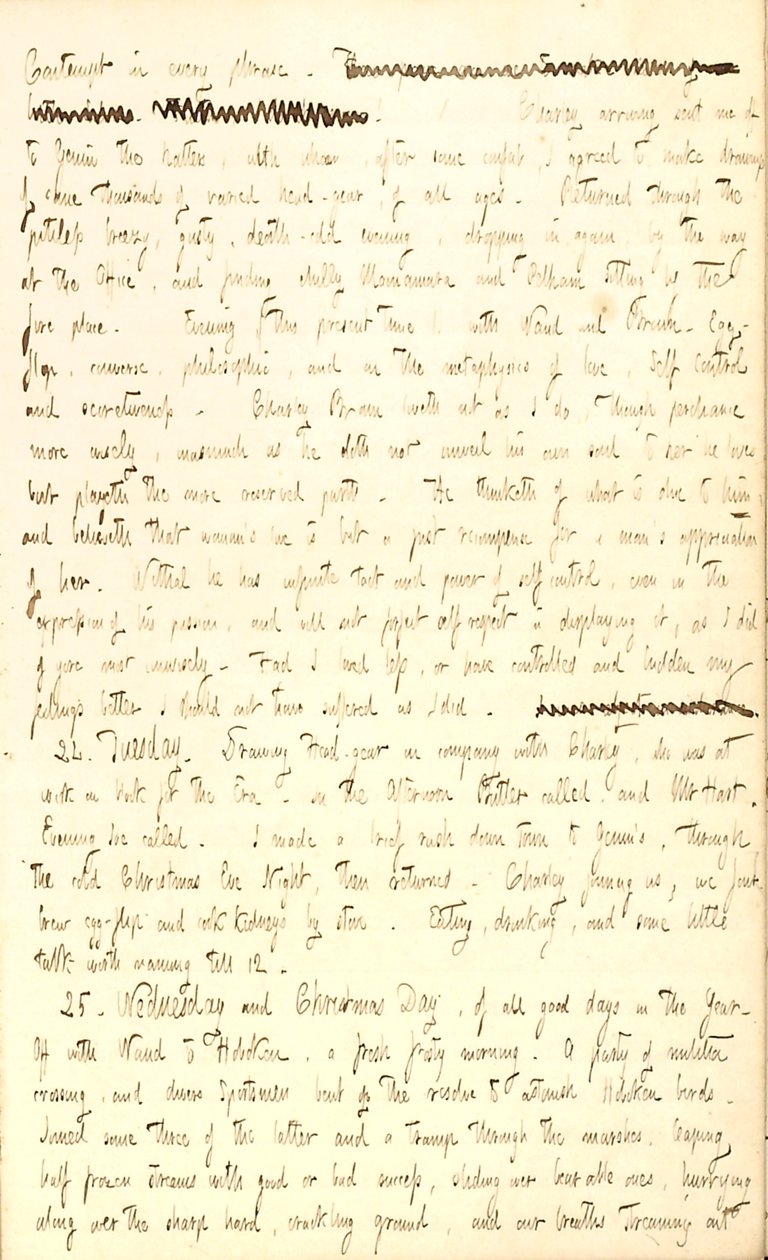 Contempt in every phrase.
Charley arriving sent me off
to Genin the hatter, with whom, after some confab, I agreed to make drawings
of some thousands of varied head-gear, of all ages. Returned through the
pitiless breezy, gusty, death-cold evening, dropping in again, by the way
at the Office, and finding chilly Macnamara and Pelham sitting by the
fire place. Evening (this present time) with Waud and Brown. Egg-
flip, converse, philosophic, and on the metaphysics of love, self control
and secretiveness. Charley Brown loveth not as I do, though perchance
more wisely, inasmuch as he doth not unveil his own soul to her he loves
but playeth the more reserved part. He thinketh of what is due to him,
and believeth that woman's love is but a just recompense for a man's appreciation
of her. Withal he has infinite tact and power of self control, even in the
expression of his passion, and will not forfeit self respect in displaying it, as I did
of yore most unwisely. Had I loved less, or have controlled and hidden my
feelings better I should not have suffered as I did.
24. Tuesday. Drawing Head-gear in company with Charley, who was at
work on block for the Era. In the Afternoon Butler called, and Mr Hart.
Evening Joe called. I made a brief rush down town to Genin's, through
the cold Christmas Eve Night, then returned. Charley joining us, we
brew egg-flip and cook kidneys by stove. Eating, drinking, and some little
talk worth naming till 12.
25. Wednesday and Christmas Day, of all good days in the Year.
Off with Waud to Hoboken, a fresh frosty morning. A party of militia
crossing, and divers Sportsmen bent on the resolve to astonish Hoboken birds.
Joined some three of the latter and a tramp through the marshes, leaping
half frozen streams with good or bad success, sliding over bearable ones, hurrying
along over the sharp hard, crackling ground, and our breaths streaming out